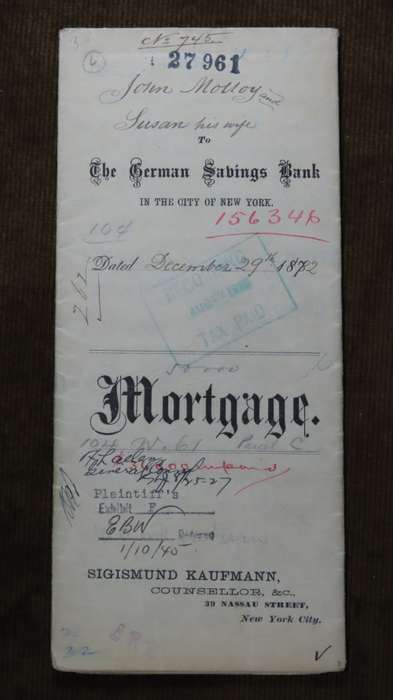 No 745
27961
John Molloy and
Susan his wife
To
The German Savings Bank
IN THE CITY OF NEW YORK.
156346
104
Dated December 29th 1872
TAX PAID
50000
Mortgage.
104 W. 61 Parcel C
25-27
Plaintiff's
Exhibit F
EBW
1/10/45
SIGISMUND KAUFMANN,
COUNSELLOR, &c.,
39 NASSAU STREET,
New York City.